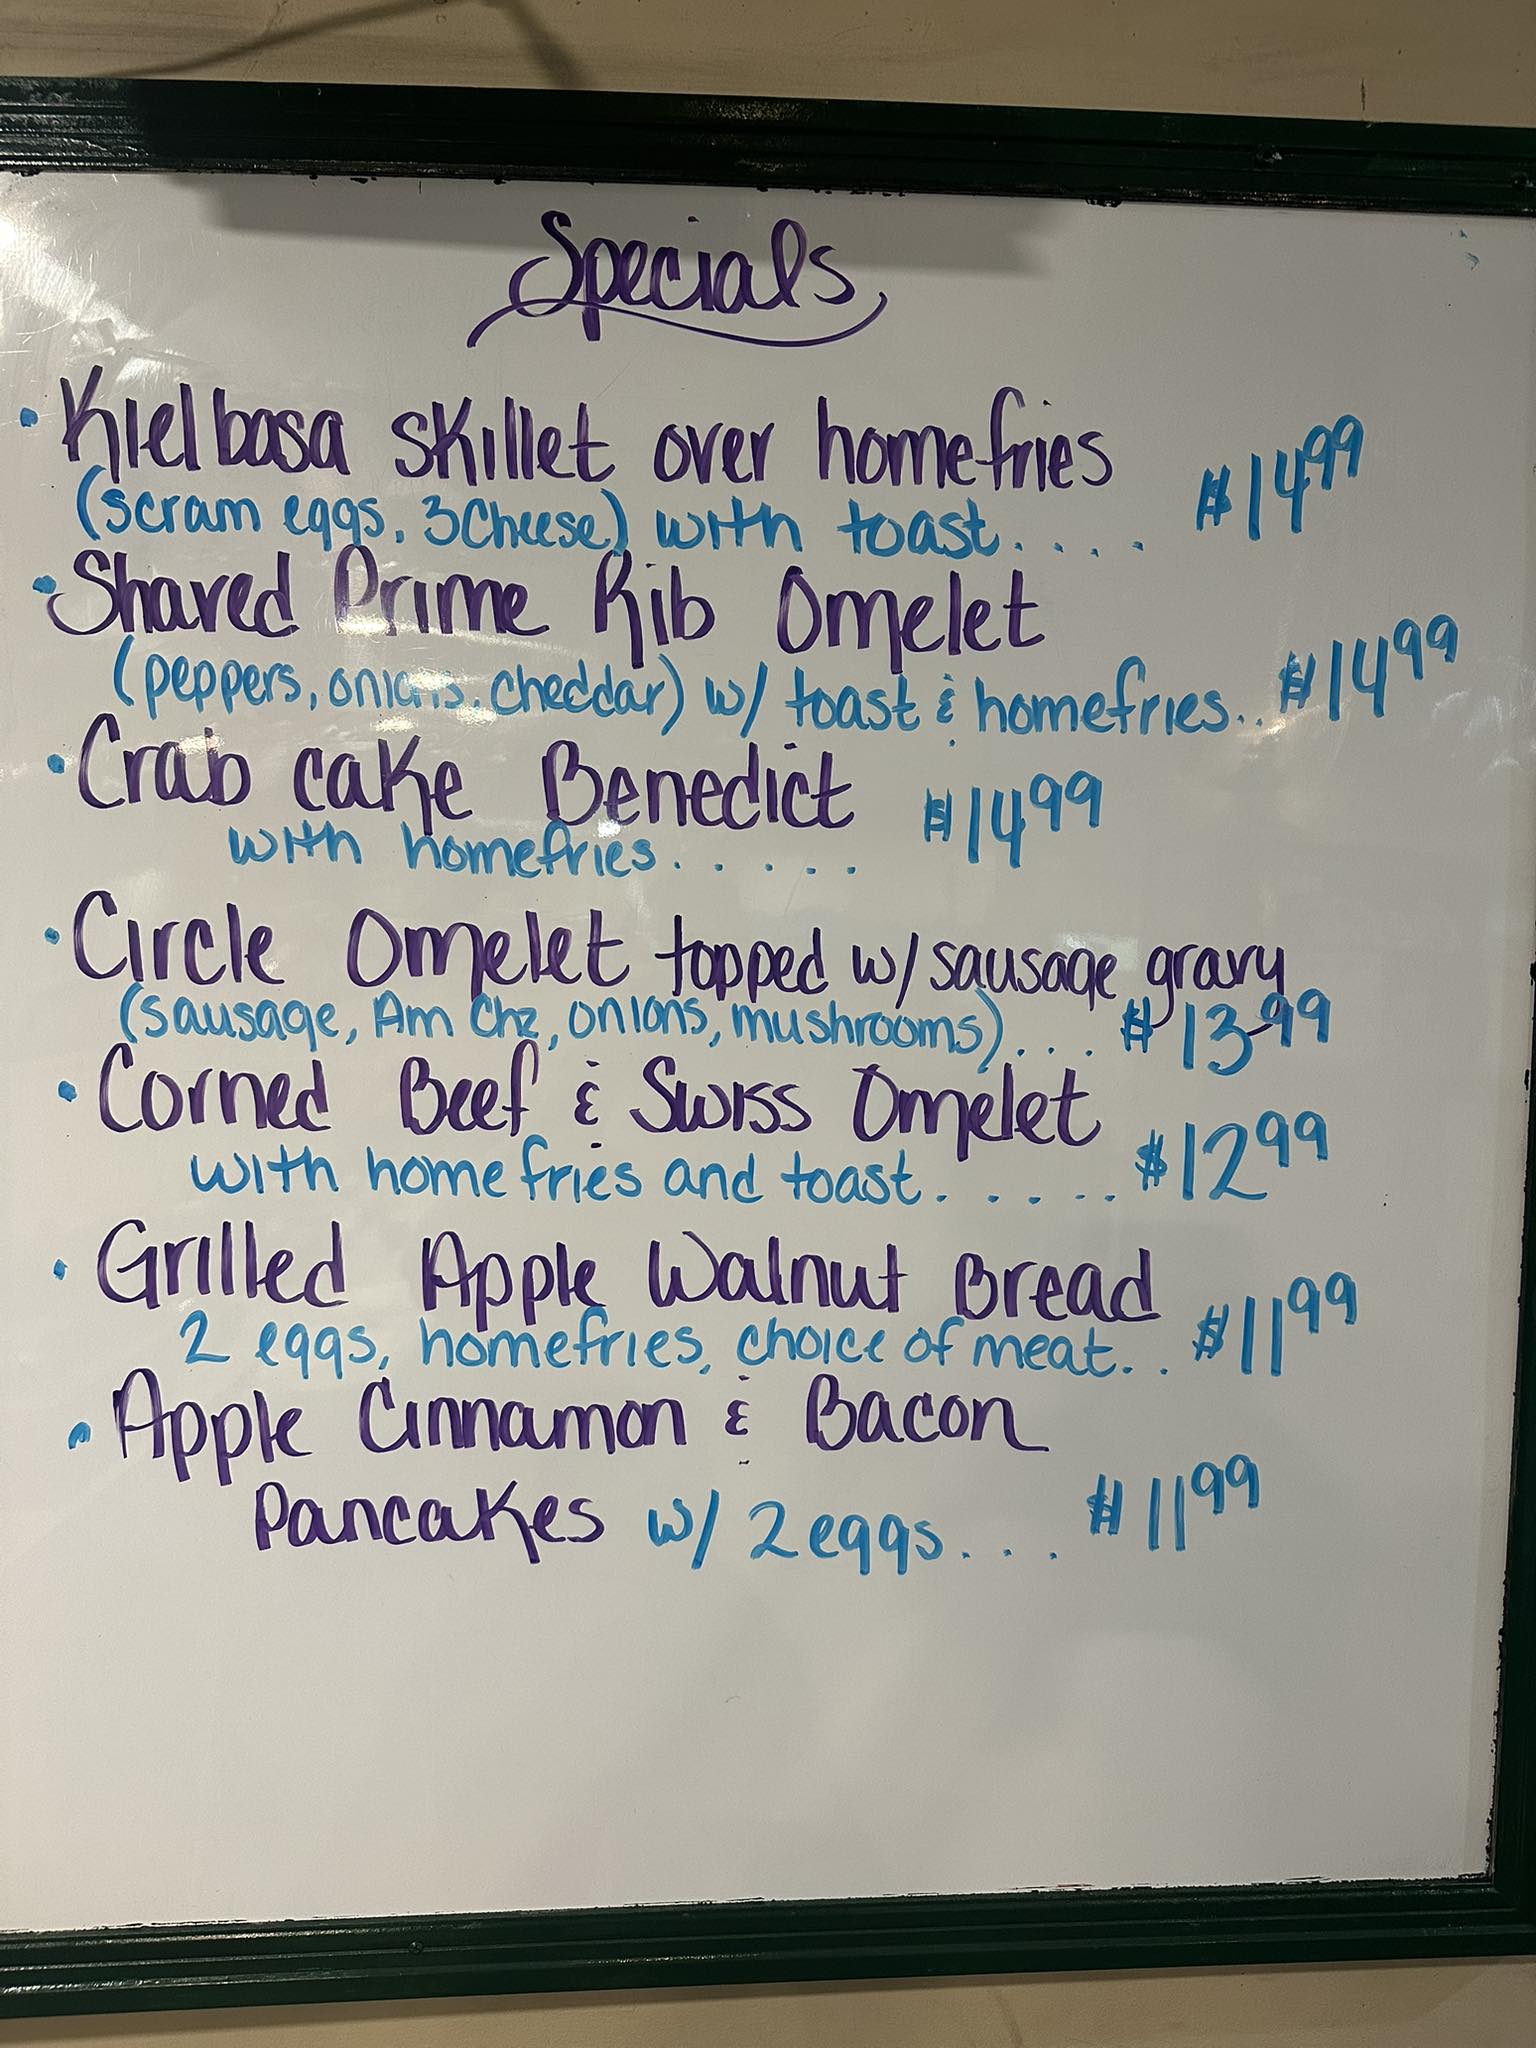 Specials
• Kielbasa skillet over homefries
(scram eggs, 3 Cheese) with toast.... $14.99
• Shaved Prime Rib Omelet
(peppers, onions, cheddar) w/ toast & homefries.. $14.99
• Crab cake Benedict $14.99
with homefries.....
• Circle Omelet topped w/ sausage gravy
(sausage, Am Chz, onions, mushrooms)... $13.99
• Corned Beef & Swiss Omelet
with homefries and toast..... $12.99
• Grilled Apple Walnut Bread
2 eggs, homefries, choice of meat.. $11.99
• Apple Cinnamon & Bacon
Pancakes w/ 2 eggs... $11.99